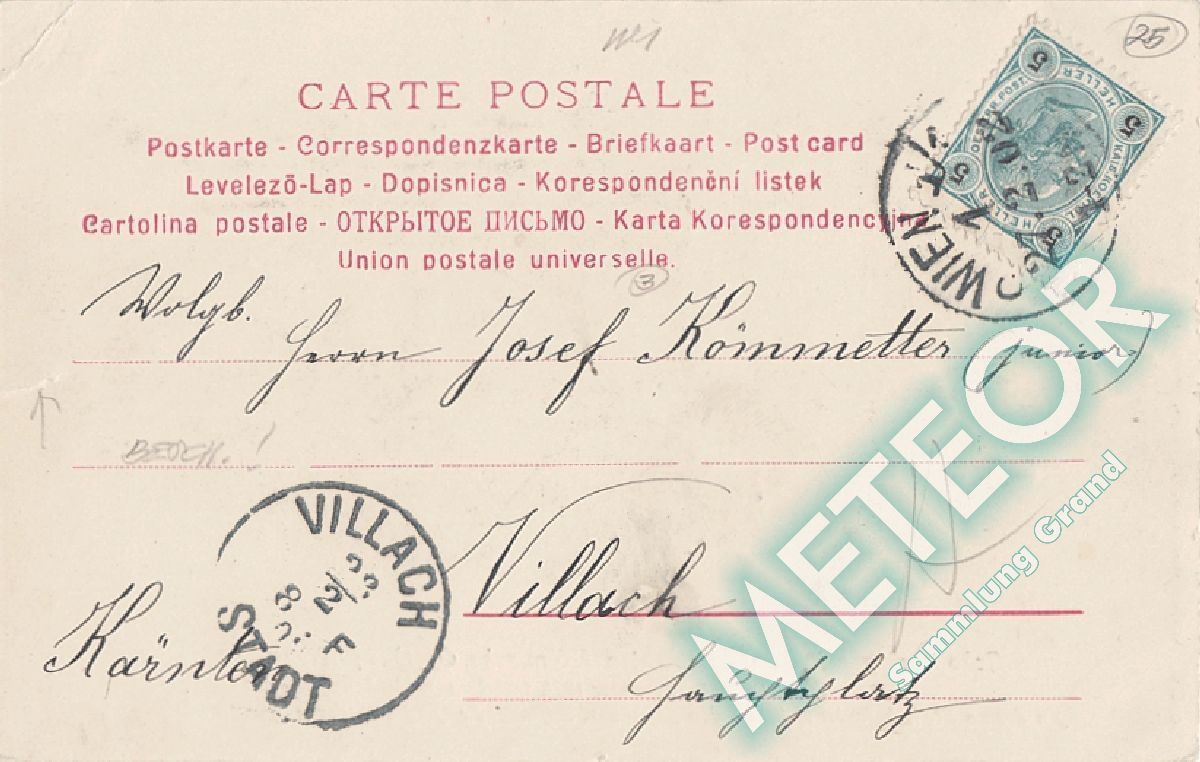 25
CARTE POSTALE
Postkarte - Correspondenzkarte - Briefkaart - Post card
Levelező-Lap - Dopisnica - Korespondenční listek
Cartolina postale - ОТКРЫТОЕ ПИСЬМО - Karta Korespondencyjna
Union postale universelle.
3
5 5 5 5
HELLER
HELLER
WIEN
Wolgb.
Herrn Josef Kömmetter junior
VILLACH
STADT
Villach
Kärnten
Hauptplatz
METEOR
Sammlung Grand